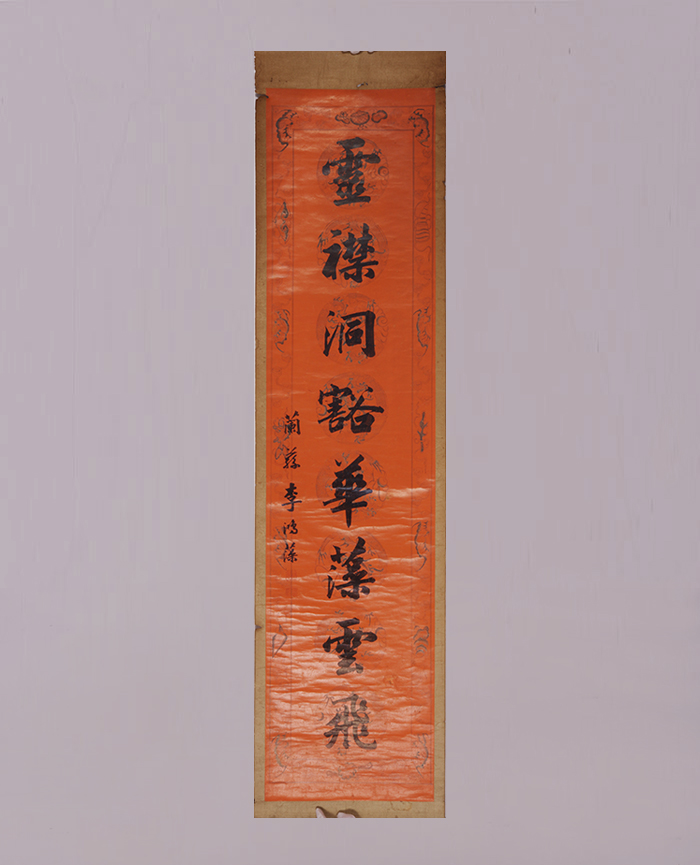 靈襟洞豁華藻雲飛
蘭蓀李鴻藻